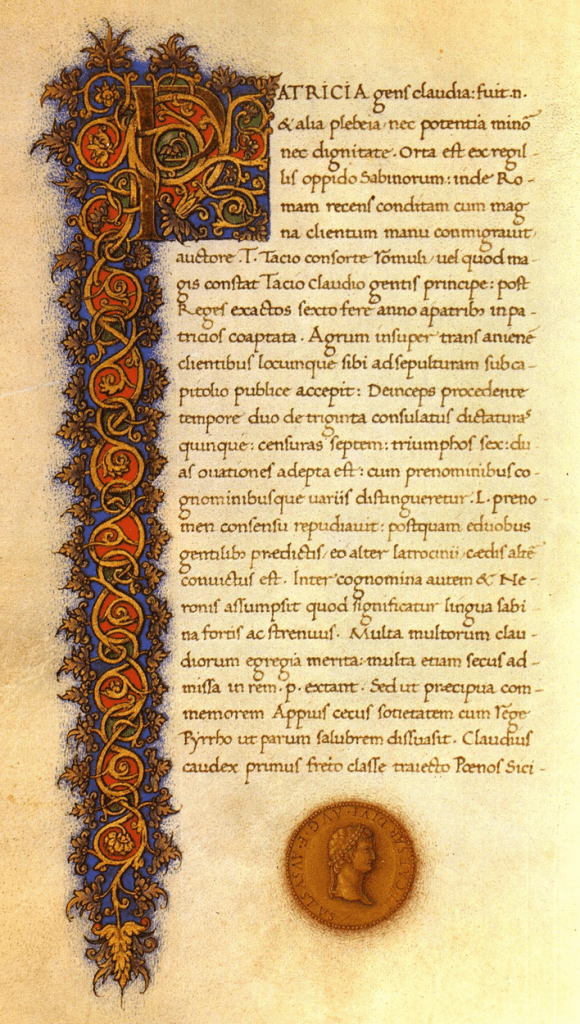 PATRICIA gens claudia: fuit .n.
& alia plebeia, nec potentia minõ
nec dignitate. Orta est ex regil-
lis oppido Sabinorum: inde Ro-
mam recens conditam cum mag
na clientum manu conmigravit,
auctore .T. Tacio consorte romuli, vel quod ma-
gis constat Tacio claudio gentis principe: post
Reges exactos sexto fere anno apatrib, in pa-
tricios coaptata. Agrum insuper trans aniene
clientibus locumque sibi ad sepulturam sub ca-
pitolio publice accepit: Deinceps procedente
tempore duo de triginta consulatus dictaturas
quinque: censuras septem: triumphos sex: du-
as ovationes adepta est: cum prenominibus co-
gnominibusque variis distingueretur. L. preno-
men consensu repudiavit: postquam e duobus
gentilib, prædictis, eo alter latrocinii, cædis altẽ
convictus est. Inter cognomina autem & Ne-
ronis assumpsit quod significatur lingua sabi-
na fortis ac strenuus. Multa multorum clau-
diorum egregia merita: multa etiam secus ad-
missa in rem .p. extant. Sed ut præcipua com-
memorem Appius cecus societatem cum rege
Pyrrho ut parum salubrem dissuasit. Claudius
caudex primus freto classe traiecto Pœnos Sici-